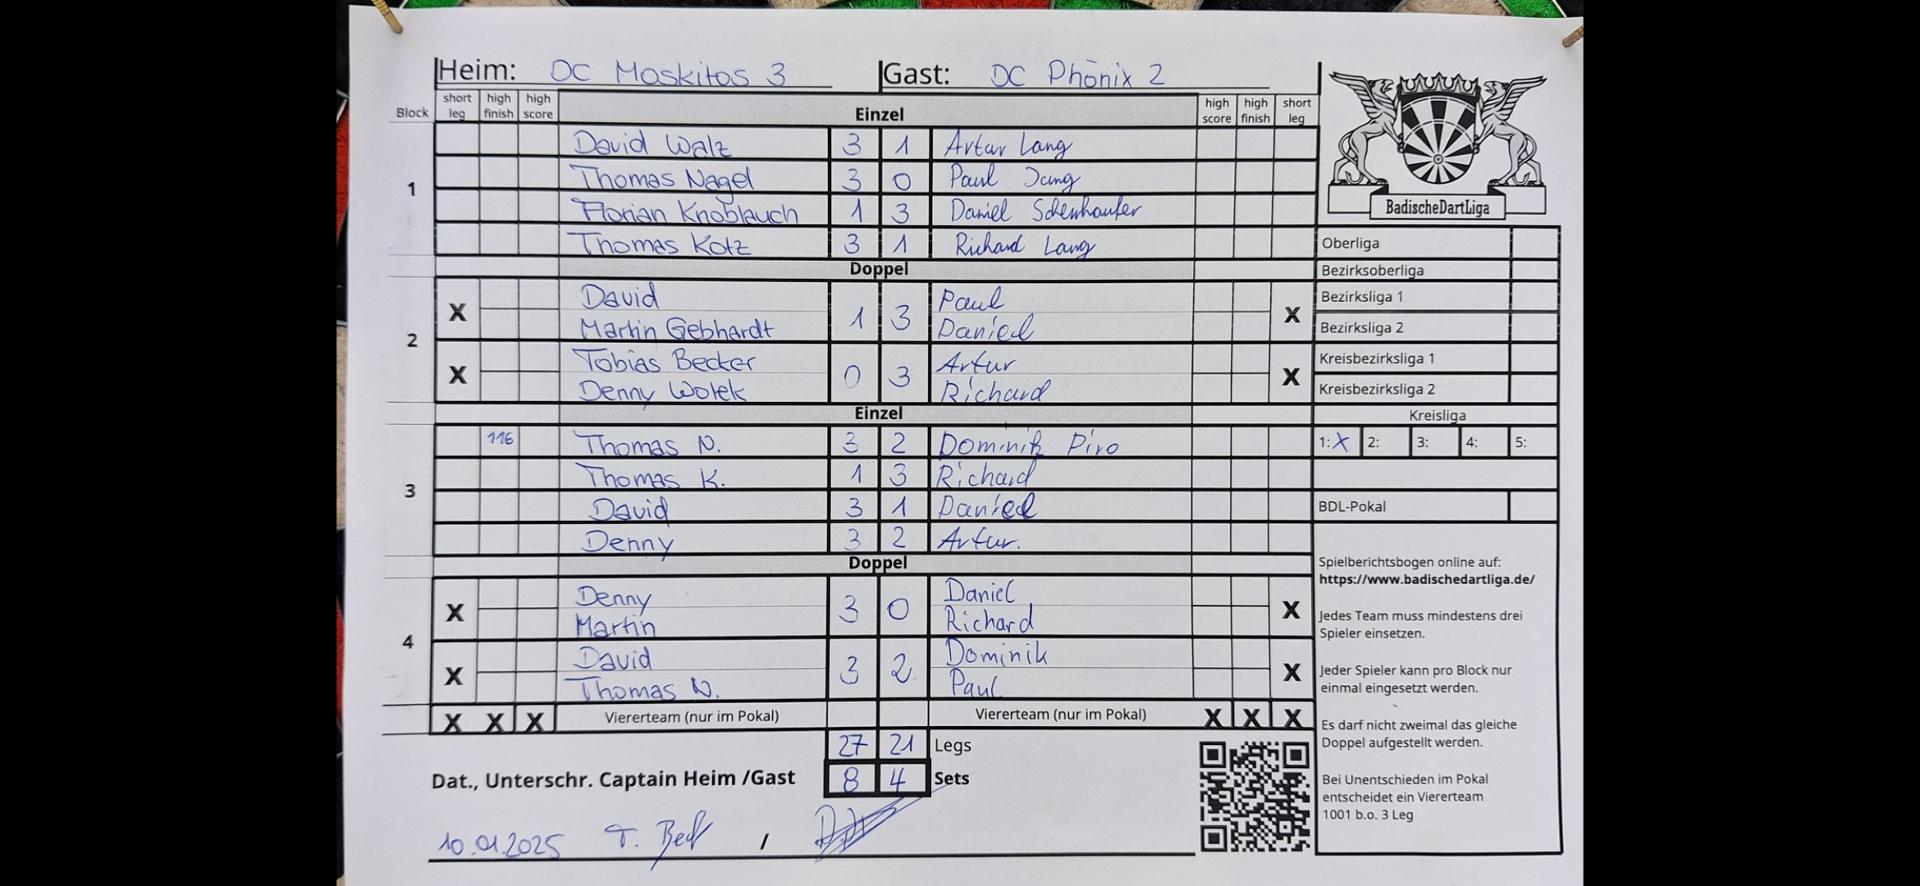 Heim: DC Moskitos 3 Gast: DC Phönix 2
Block short leg high finish high score Einzel high score high finish short leg
1
David Walz 3 1 Artur Lang
Thomas Nagel 3 0 Paul Jang
Florian Knoblauch 1 3 Daniel
Thomas Kotz 3 1 Richard Lang
Doppel
2
X David 1 3 Paul X
Martin Gebhardt Daniel
X Tobias Becker 0 3 Artur X
Denny Wolek Richard
Einzel
3
116 Thomas N. 3 2 Dominik Piro
Thomas K. 1 3 Richard
David 3 1 Daniel
Denny 3 2 Artur.
Doppel
4
X Denny 3 0 Daniel X
Martin Richard
X David 3 2 Dominik X
Thomas N. Paul
X X X Viererteam (nur im Pokal) Viererteam (nur im Pokal) X X X
27 21 Legs
Dat., Unterschr. Captain Heim /Gast 8 4 Sets
10.01.2025 T. Beck /
BadischeDartLiga
Oberliga
Bezirksoberliga
Bezirksliga 1
Bezirksliga 2
Kreisbezirksliga 1
Kreisbezirksliga 2
Kreisliga
1: X 2: 3: 4: 5:
BDL-Pokal
Spielberichtsbogen online auf:
https://www.badischedartliga.de/
Jedes Team muss mindestens drei
Spieler einsetzen.
Jeder Spieler kann pro Block nur
einmal eingesetzt werden.
Es darf nicht zweimal das gleiche
Doppel aufgestellt werden.
Bei Unentschieden im Pokal
entscheidet ein Viererteam
1001 b.o. 3 Leg